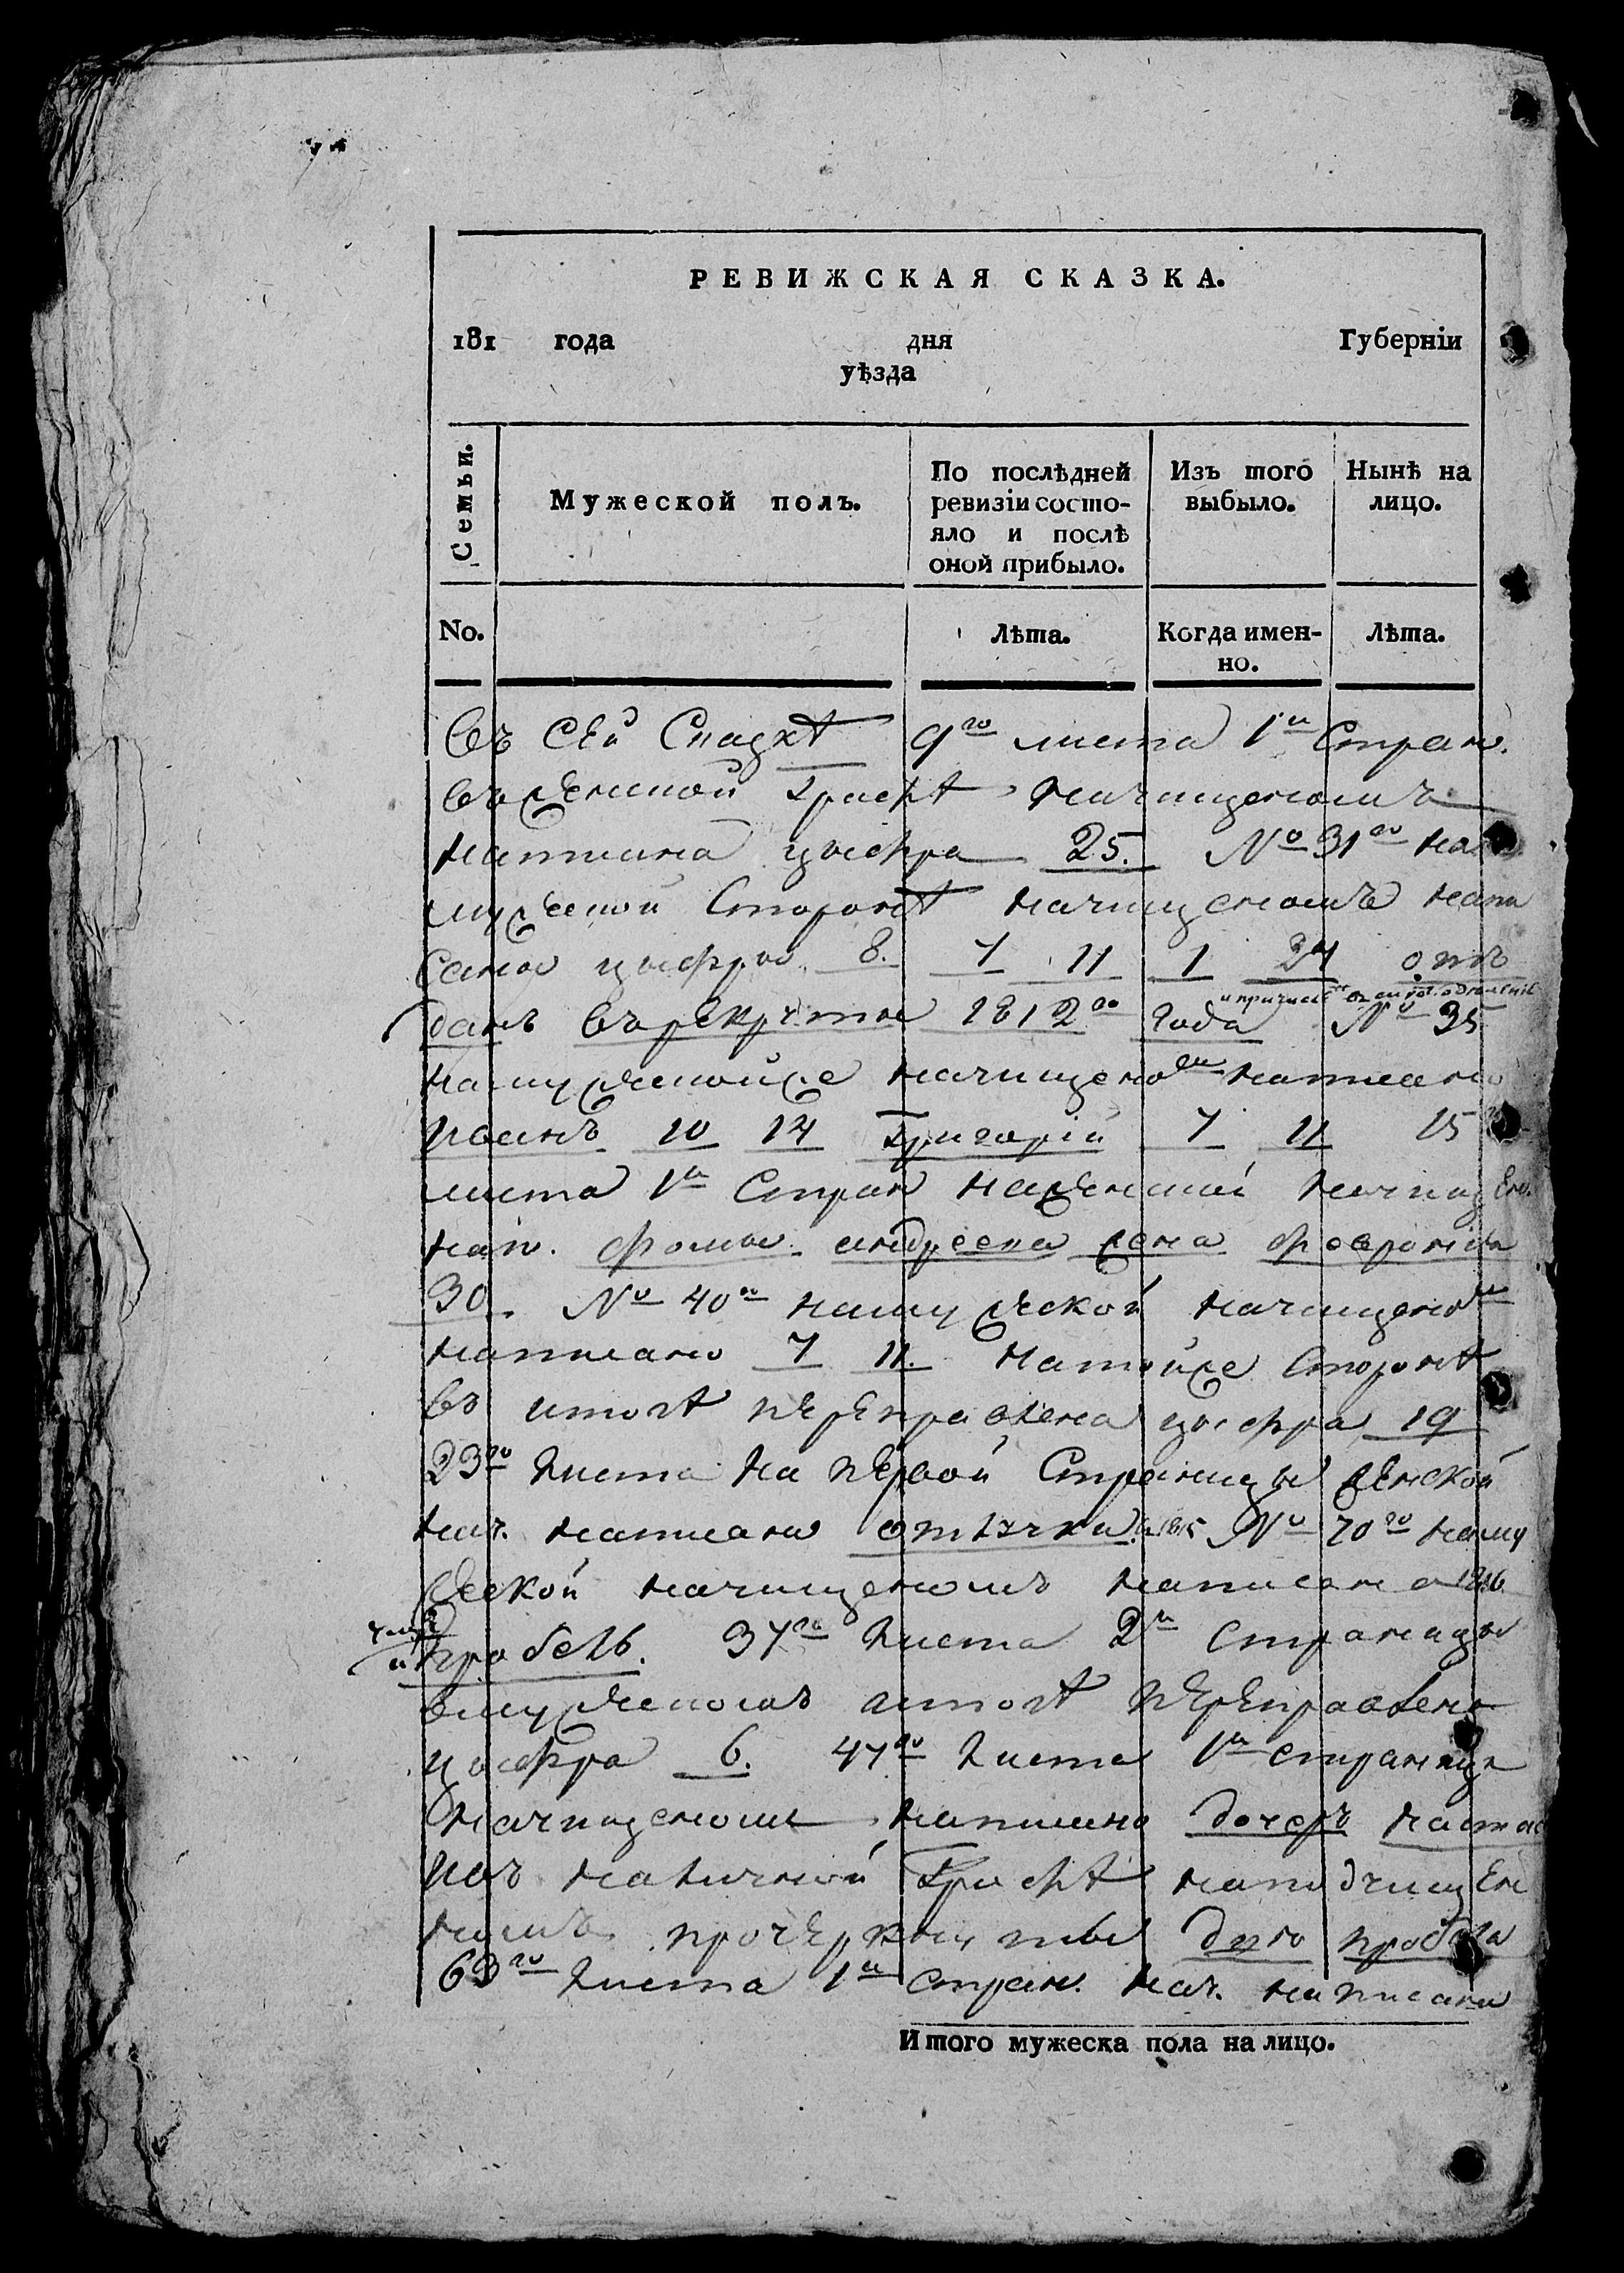 РЕВИЖСКАЯ СКАЗКА.
181 года дня Губерніи
уѣзда
Семьи.
Мужеской полъ.
По послѣдней ревизіи состо-яло и послѣ оной прибыло.
Изъ того выбыло.
Нынѣ на лицо.
No.
Лѣта.
Когда имен-но.
Лѣта.
Въ сей Сказкѣ 9го листа 1й Стран.
въ женской графѣ начищеномъ
написана цыфра 25. № 31го на
мужеской Сторонѣ начищеномъ напи
саны цыфры 8. 7 11 1 24 отъ
данъ въ рекруты 1812го года № 35
на мужеской же начищеном написано
Иванъ 10 14 Григорій 7 11 15
листа 1й Стран на женской начищен.
нап. Фомы андреева жена Февронія
30. № 40го на мужеской начищеном
написано 7 11. на той же Сторонѣ
въ итогѣ переправлена цыфра 19
23го листа на первой Страницы женской
нач. написано отлучки 1815 № 70го на му
жеской начищеномъ написано 1816
и пробелъ. 37го листа 2й Страницы
в мужескомъ итогѣ переправлена
цыфра 6. 47го листа 1й страниц
начищеном написано дочерь настас
изъ наличной графѣ на подчищен
номъ прочеркнуты дуго пробела
63го листа 1й стран. нач. написана
Итого мужеска пола на лицо.